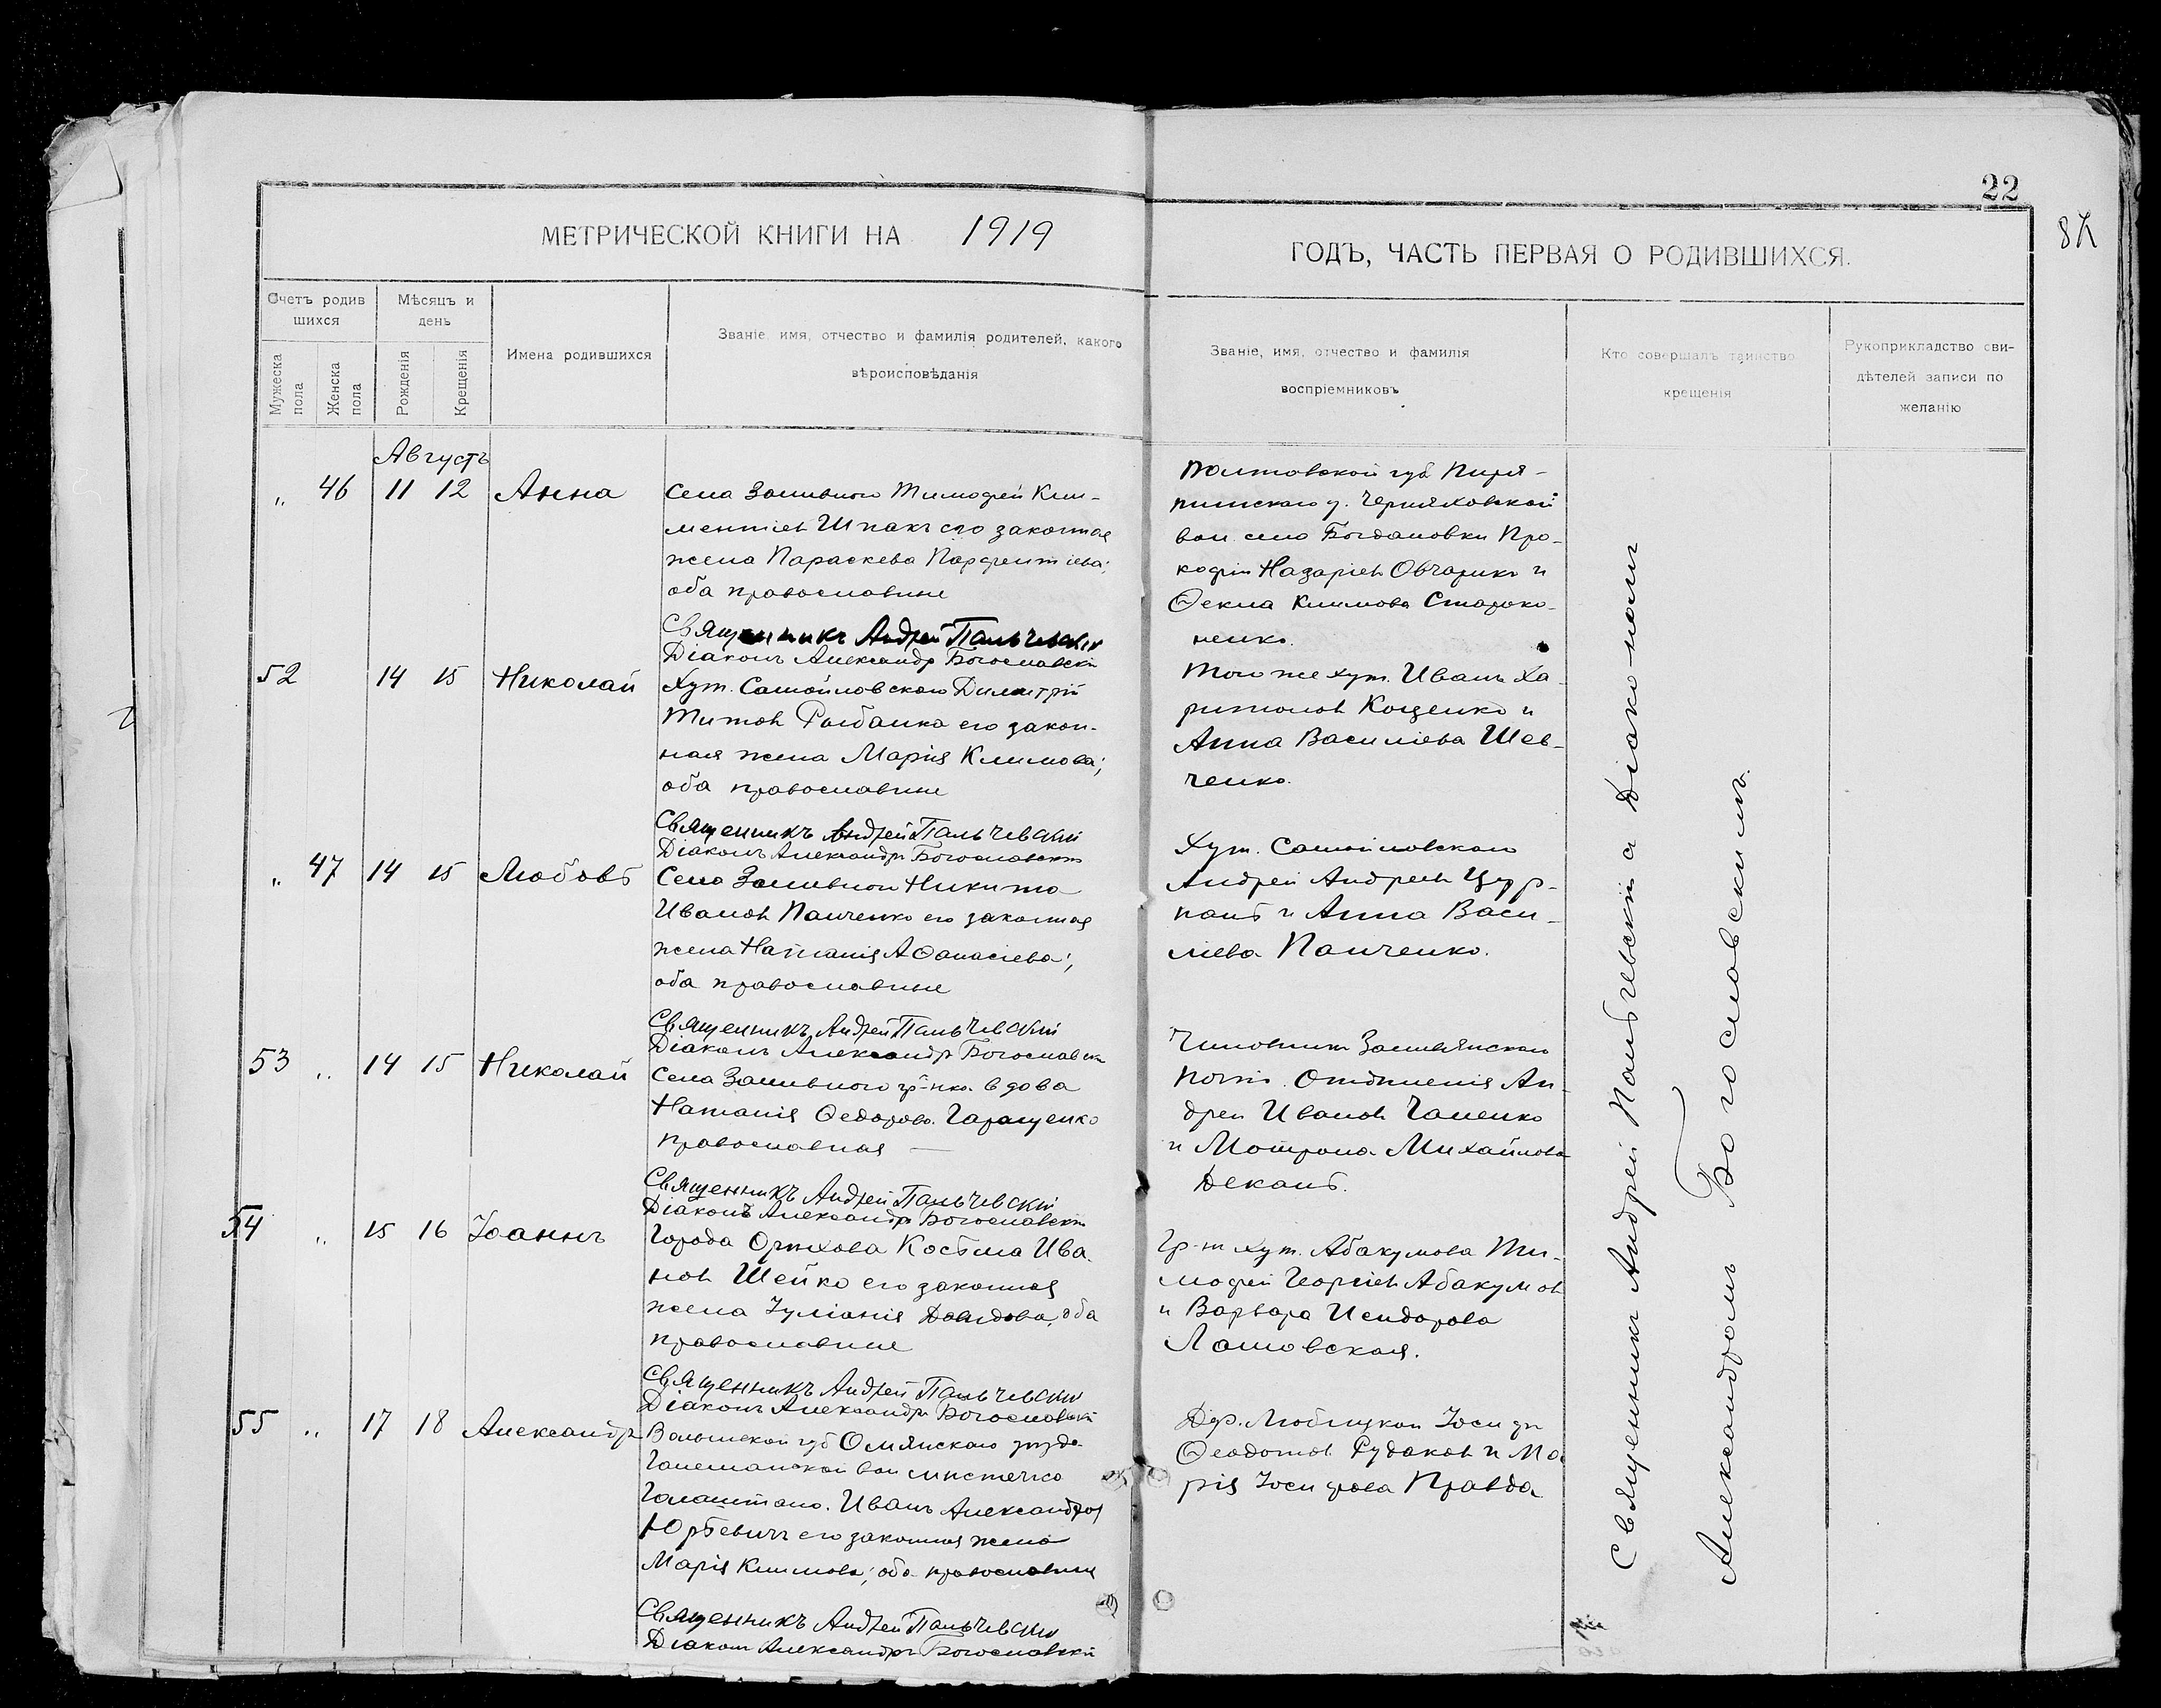 22
87
МЕТРИЧЕСКОЙ КНИГИ НА 1919
ГОДЪ, ЧАСТЬ ПЕРВАЯ О РОДИВШИХСЯ.
Счетъ родив
шихся
Мужеска
пола
Женска
пола
Мѣсяцъ и
день
Рожденія
Крещенія
Имена родившихся
Званіе, имя, отчество и фамилія родителей, какого
вѣроисповѣданія
Званіе, имя, отчество и фамилія
воспріемниковъ
Кто совершалъ таинство
крещенія
Рукоприкладство сви-
дѣтелей записи по
желанію
Августъ
„ 46 11 12 Анна
Села Заливного Тимофей Кли-
ментіев Шпакъ его законная
жена Параскева Парфентіева;
оба православные
Священникъ Андрей Пальчевскій
Діаконъ Александръ Богословскій
Полтовской губ. Пиря-
тинскаго у. Черняховской
вол. село Богдановки Про-
кофій Назаріев Овчарикъ и
Ѳекла Климова Староко-
ненко.
52 14 15 Николай
Хут. Самойловскаго Димитрій
Титов Рыбалка его закон-
ная жена Марія Климова;
оба православные
Священникъ Андрей Пальчевскій
Діаконъ Александръ Богословскій
Того же хут. Иванъ Ха-
ритонов Кощенко и
Анна Василіева Шев-
ченко.
„ 47 14 15 Любовь
Села Заливного Никита
Иванов Панченко его законная
жена Наталія Аѳанасіева;
оба православные
Священникъ Андрей Пальчевскій
Діаконъ Александръ Богословскій
Хут. Самойловскаго
Андрей Андреев
и Анна Васи-
ліева Панченко.
53 „ 14 15 Николай
Села Заливного гр-нка вдова
Наталія Ѳедорова Гаращенко
православная —
Священникъ Андрей Пальчевскій
Діаконъ Александръ Богословскій
Чиновникъ Заливянскаго
почт. Отдѣленія Ан-
дрей Иванов Галенко
и Мотрона Михайлова
Декань.
54 „ 15 16 Іоаннъ
Города Орѣхова Косьма Ива-
нов Шейко его законная
жена Іуліанія Давидова, оба
православные
Священникъ Андрей Пальчевскій
Діаконъ Александръ Богословскій
Гр-нъ хут. Абакумова Ти-
мофей Георгіев Абакумов
и Варвара Исидорова
Лашовская.
55 „ 17 18 Александръ
Волынской губ. уѣзда
вол. мистечко
Иванъ Александров
Юрьевичъ его законная жена
Марія Климова; оба православные
Священникъ Андрей Пальчевскій
Діаконъ Александръ Богословскій
Дер. Любицкой Іосифъ
Ѳеодотов Рудаков и Ма-
рія Іосифова Правда
Священникъ Андрей Пальчевскій съ Діакономъ
Александромъ Богословскимъ.